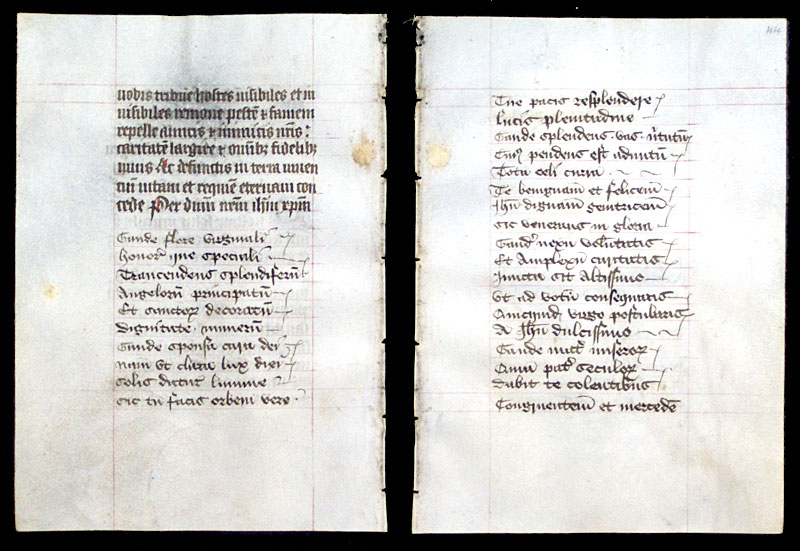 nobis tribue hostes uisibiles et in
uisibiles remoue pestē & famem
repelle amicis & inimicis nr̄is :
caritatem largire & omībȝ fidelibȝ
uiuis Ac defunctis in terra uiuen
ciū uitam et requiē eternam con
cede Per dūm nr̄m ihm xpm
Gaude flore virginali
honorꝫ que speciali
Trancendens splendiferū
Angelorū principatū
Et sanctorꝫ decoratū
dignitate numerū
Gaude sponsa cara dei
nam vt clara lux diei
solis datur lumine
sic tu facis orbem vere
44
Tue pacis resplendere
lucis plenitudine
Gaude splendens vas v̓tutū
Cuiꝰ pendens est ad nutū
Tota celi curia
Te benignam et felicem
Ihū dignam genitricem
sic venerans in gloria
Gaudꝫ nexu volūtatis
Et Amplexu caritatis
Juncta sic Altissimo
vt ad votū consequaris
Quicquid virgo postularis
A Ihū dulcissimo
Gaude matꝫ miserorꝫ
Quia patꝫ seculorꝫ
dabit te colentibus
Congruentem et mercedē